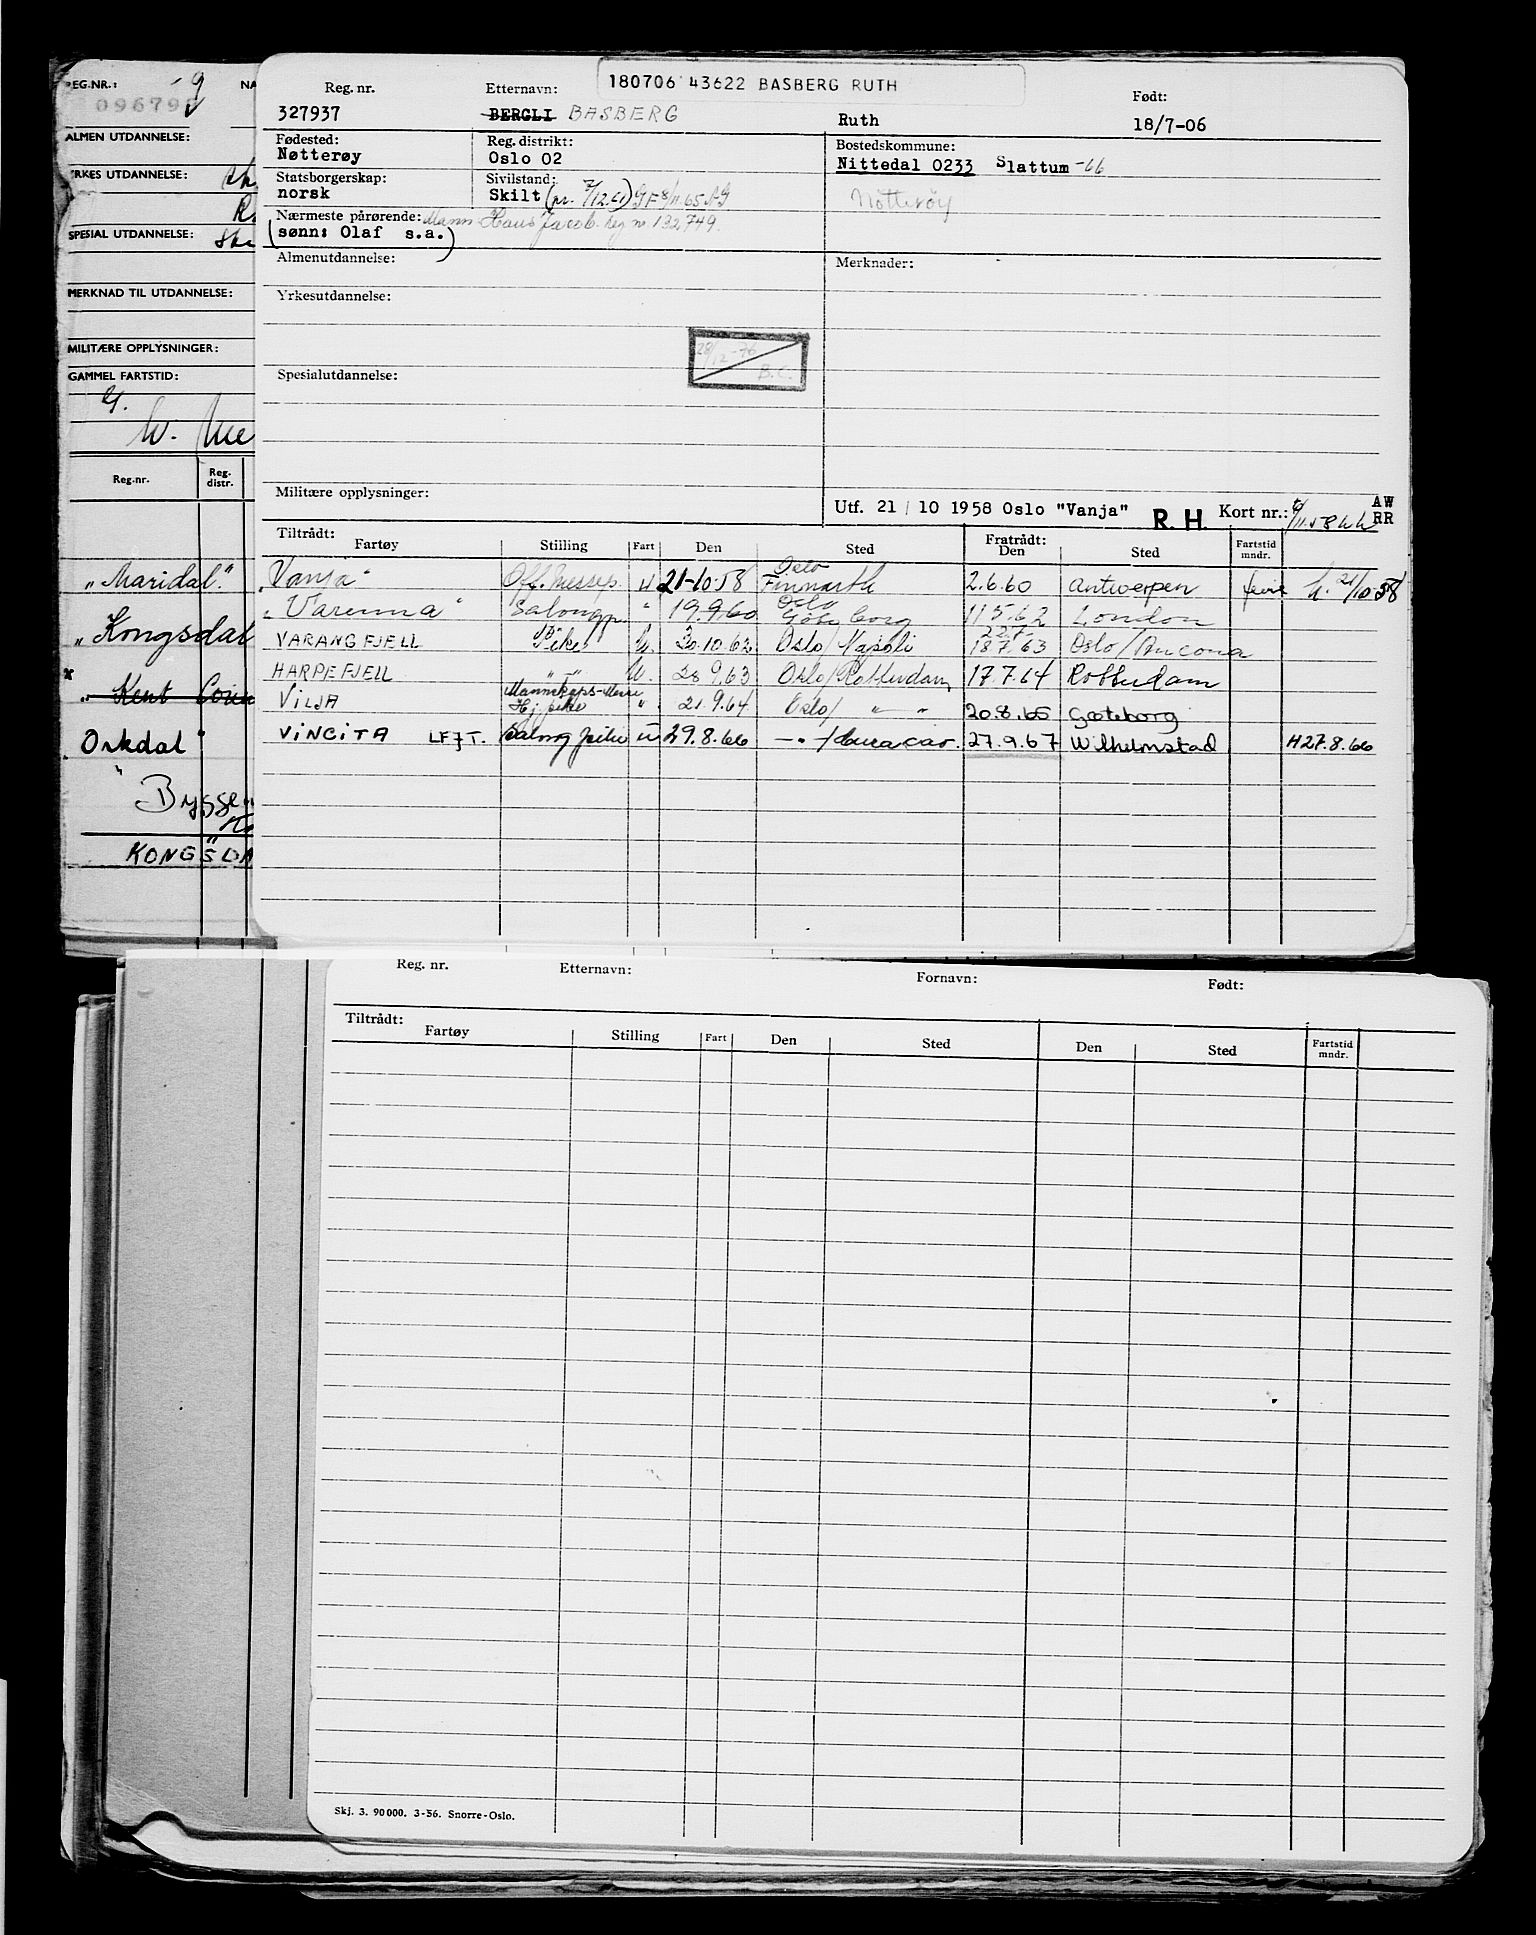 REG.NR.:
NA
ALMEN UTDANNELSE:
YRKES UTDANNELSE:
SPECIAL UTDANNELSE:
MERKNAD TIL UTDANNELSE:
MILITÆRE OPPLYSNINGER:
GAMMEL FARTSTID:
Reg.nr.
Reg. distr.
„Maridal."
„Kongsdal
Kent
Orkdal"
KONGSDA
180706 43622 BASBERG RUTH
Reg. nr. Etternavn: Født:
327937 BERGLI BASBERG Ruth 18/7-06
Fødested: Reg. distrikt: Bostedskommune:
Nøtterøy Oslo 02 Nittedal 0233 Slattum -66
Statsborgerskap: Sivilstand: Nøtterøy
norsk Skilt (pr. 7/12.61) GF 8/11.65
Nærmeste pårørende: Mann Hans Jacob. Reg nr 132749.
(sønn: Olaf s.a.)
Almenutdannelse: Merknader:
Yrkesutdannelse:
28/12-76
B.C.
Spesialutdannelse:
Militære opplysninger:
Utf. 21/10 1958 Oslo "Vanja" R.H. Kort nr.: AW
RR
Tiltrådt: Fratrådt:
Fartøy Stilling Fart Den Sted Den Sted Fartstid mndr.
„Vanja" Off.messep. U 21-10-58 Oslo Finnarth 2.6.60 Antwerpen ferie h. 21/10-58
„Varenna" Salongp. " 19.9.60 Oslo Göteborg 11.5.62 London
VARANGFJELL Pike U. 30.10.62 Oslo/Napoli 22.7- 18.7.63 Oslo/Ancona
HARPEFJELL " " U. 28.9.63 Oslo/Rotterdam 17.7.64 Rotterdam
VILJA Mannskaps-Messe Hj.pike " 21.9.64 Oslo/ — " — 20.8.65 Gøteborg
VINGITA LFJT. Salongpike U 29.8.66 — " — /Curacao. 27.9.67 Wilhelmstad H27.8.66
Reg. nr. Etternavn: Fornavn: Født:
Tiltrådt:
Fartøy Stilling Fart Den Sted Den Sted Fartstid mndr.
Skj. 3. 90000. 3-56. Snorre-Oslo.